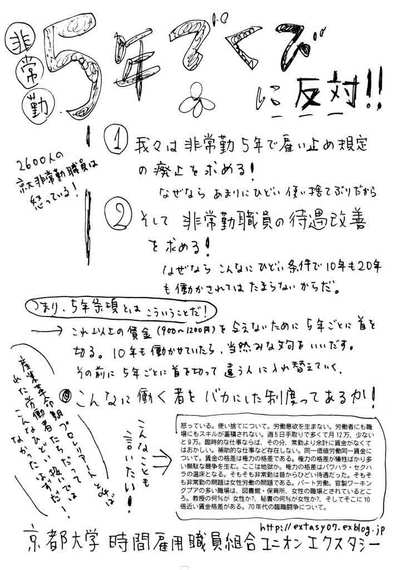 非常勤
5年でくび
に反対!!
2600人の
京大非常勤職員は
怒っている!
1 我々は非常勤5年で雇い止め規定
の廃止を求める!
なぜなら あまりにひどい使い捨てぶりだから
2 そして 非常勤職員の待遇改善
を求める!
なぜなら こんなに ひどい条件で10年も20年
も働かされては たまらないからだ。
つまり、5年条項とは こういうことだ!
→これ以上の賃金(900〜1200円)を与えないために5年ごとに首を
切る。10年も働かせていたら、当然みな文句をいいだす。
その前に5年ごとに首を切って違う人に入れ替えていく。
こんなに働く者をバカにした制度ってあるか!
こんなことも
言いたい!
怒っている。使い捨てについて。労働意欲を生まない。労働者にも職
場にもスキルが蓄積されない。週5日手取りで多くて月12万、少ない
と9万。臨時的な仕事ならば、その分、常勤より余計に賃金がなくて
はおかしい。補助的な仕事など存在しない。同一価値労働同一賃金に
ついて。賃金の格差は権力の格差である。権力の格差が犠牲ばかり多
い無駄な競争を生む。ここは地獄か。権力の格差はパワハラ・セクハ
ラの温床となる。そもそも非常勤は昔からひどい待遇だった。そもそ
も非常勤の問題は女性労働の問題である。パート労働。官製ワーキン
グプアの多い職場は、図書館・保育所、女性の職場とされているとこ
ろ。教授の何%が 女性か?、秘書の何%が女性か?、そしてそこに10
倍近い賃金格差がある。70年代の臨職闘争について。
http://extasy07.exblog.jp
京都大学 時間雇用職員組合ユニオンエクスタシー